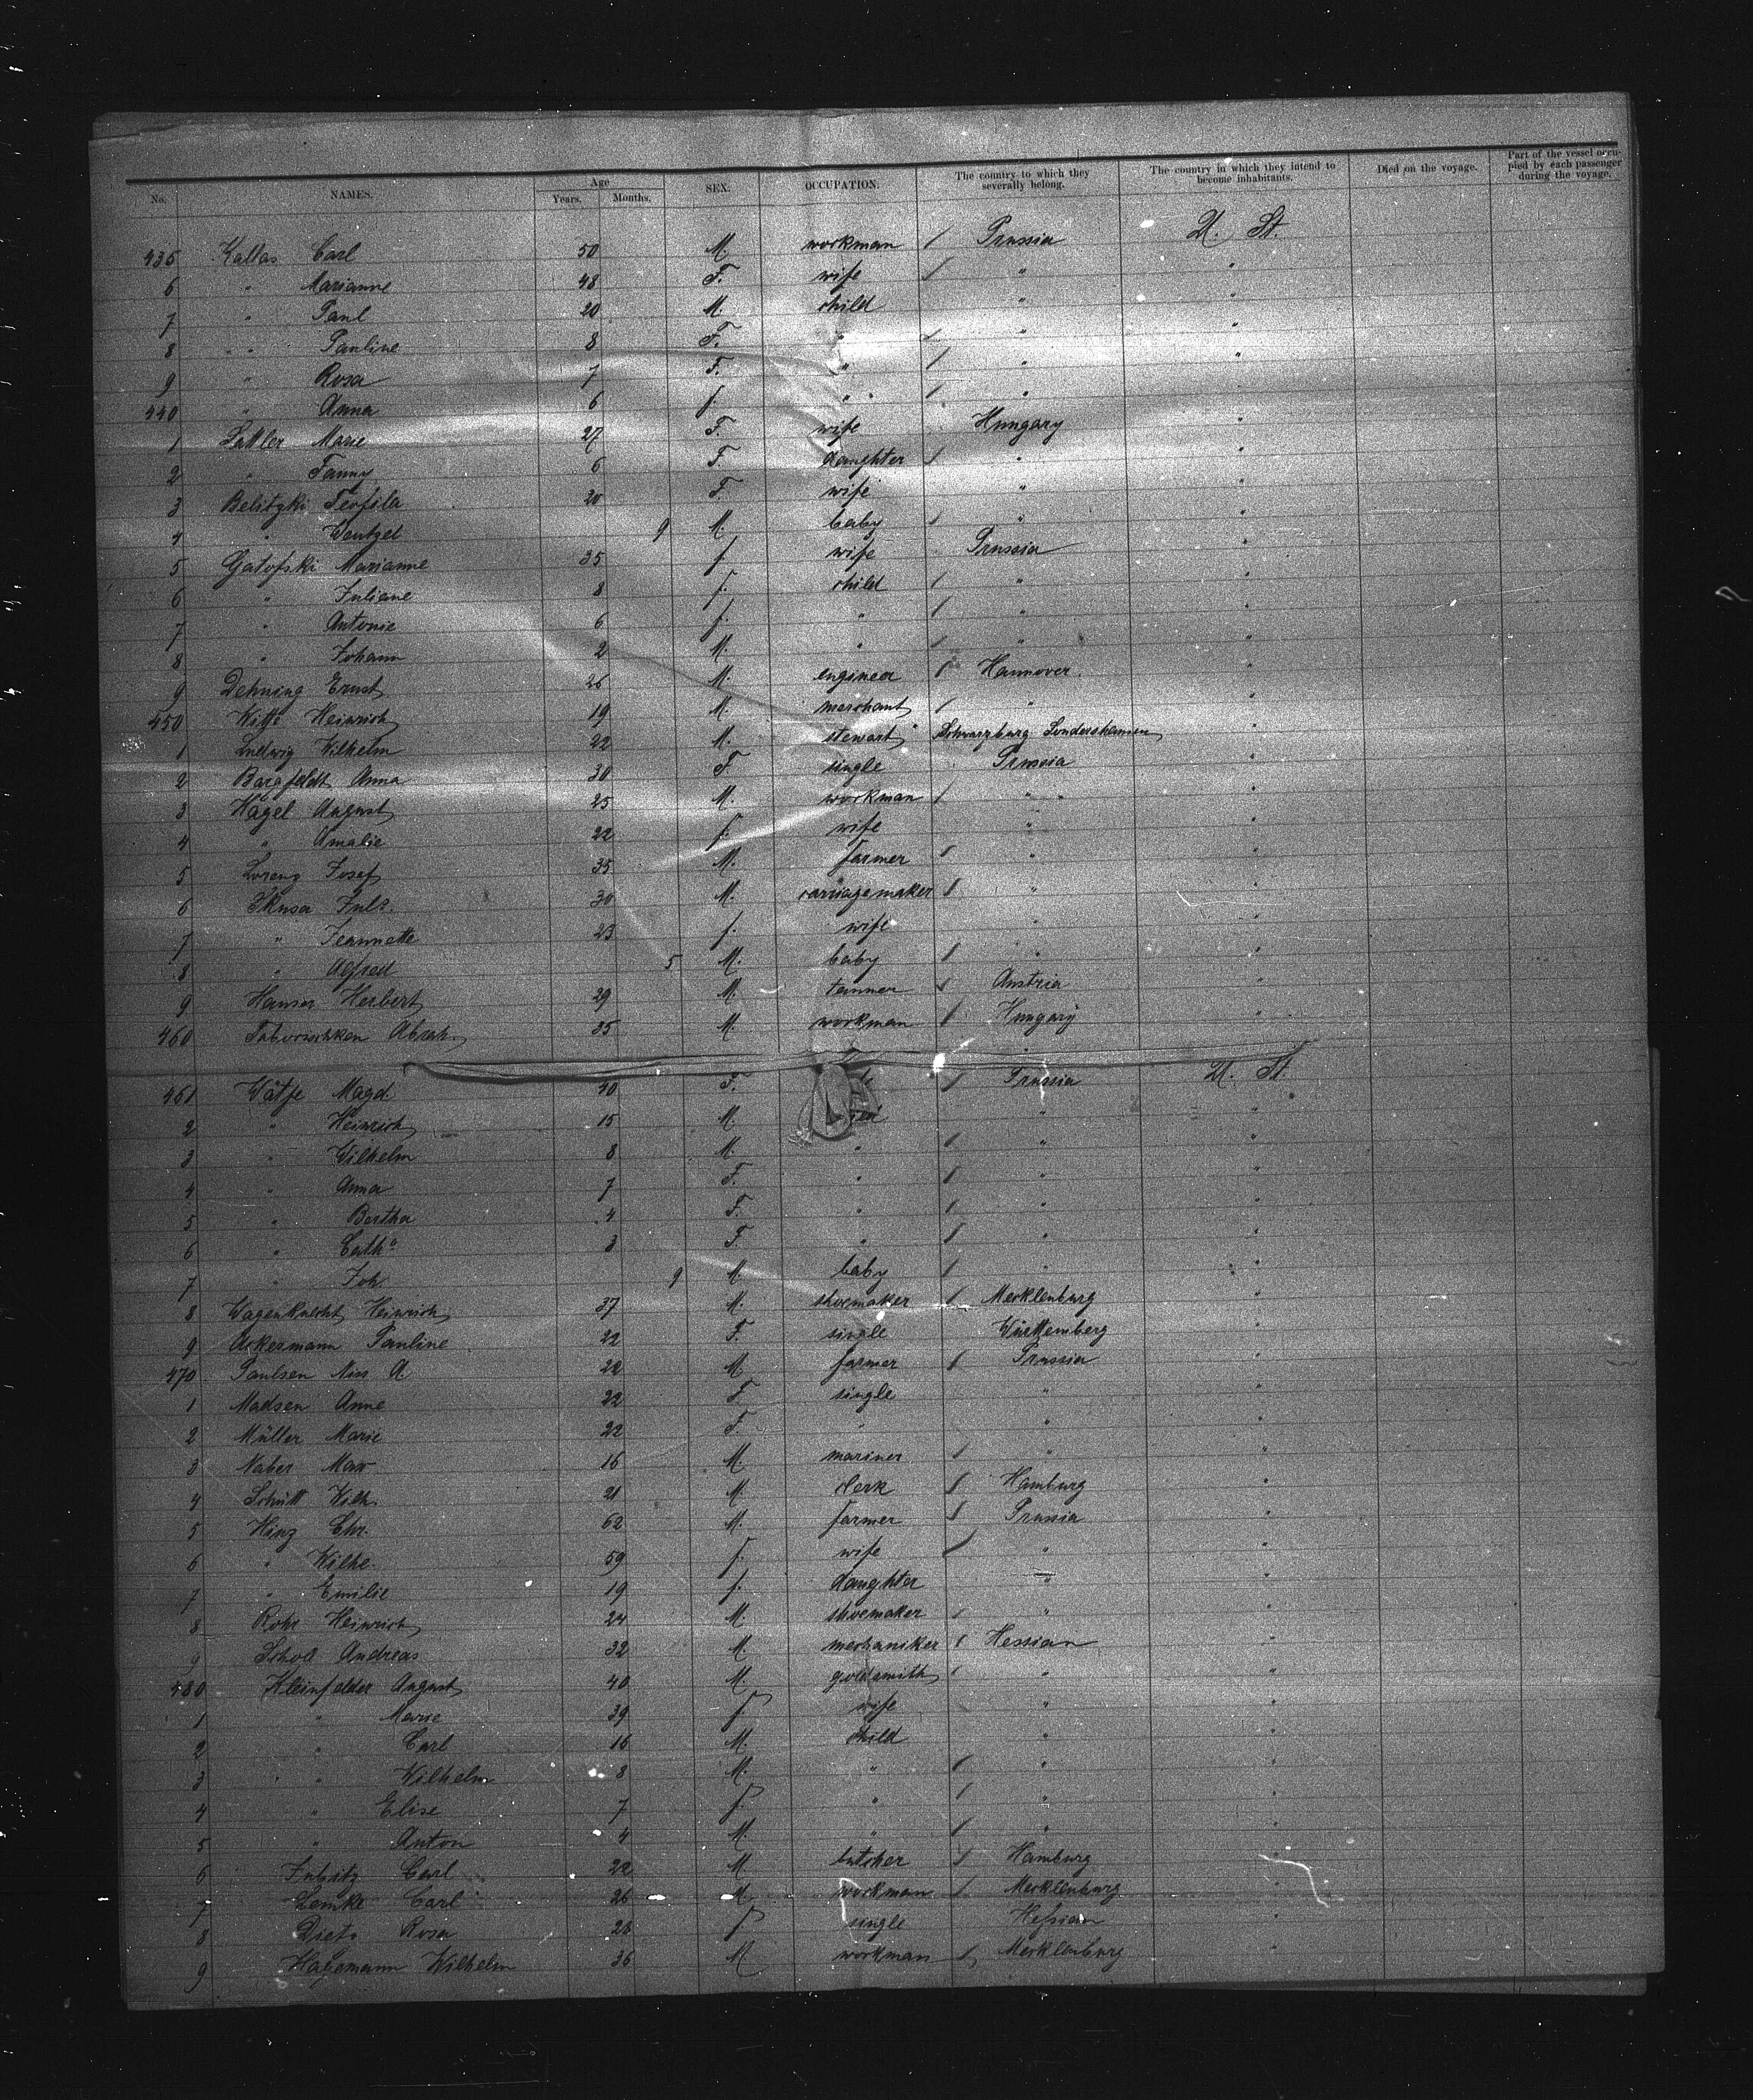 No. NAMES. Age Years. Months. SEX. OCCUPATION. The country to which they severally belong. The country in which they intend to become inhabitants. Died on the voyage. Part of the vessel occupied by each passenger during the voyage.
435 Kallas Carl 50 M. workman / Prussia U. St.
6 " Marianne 48 F. wife / " "
7 " Paul 20 M. child " "
8 " Pauline 8 F. " / " "
9 " Rosa 7 F. " / " "
440 " Anna 6 f. " / " "
1 Sattler Marie 27 F. wife Hungary "
2 " Fanny 6 F. daughter / " "
3 Belitzki Teofila 20 F. wife " "
4 " Wentzel 9 M. baby / " "
5 Gatofski Marianne 35 f. wife Prussia "
6 " Juliane 8 f. child / " "
7 " Antonie 6 f. " / " "
8 " Johann 2 M. " / " "
9 Dehning Ernst 26 M. engineer / Hannover. "
450 Witte Heinrich 19 M. merchant / " "
1 Ludwig Wilhelm 22 M. stewart Schwarzburg Sondershausen "
2 Bargfeldt Anna 30 F. single Prussia "
3 Hagel August 25 M. workman / " "
4 " Amalie 22 f. wife " "
5 Lorenz Josef 35 M. farmer / " "
6 Juls. 30 M. carriagemaker / " "
7 " Jeannette 23 f. wife " "
8 " Alfred 5 M. baby / " "
9 Hanser Herbert 29 M. tanner / Austria "
460 Abrah. 35 M. workman / Hungary "
461 Wätje Magd. 40 F. / Prussia U. St.
2 " Heinrich 15 M. " "
3 " Wilhelm 8 M. " / " "
4 " Anna 7 F. " / " "
5 " Bertha 4 F. " / " "
6 " Cath. 3 F. " / " "
7 " Joh. 9 M. baby / " "
8 Wagenknecht Heinrich 37 M. shoemaker / Mecklenburg "
9 Ackermann Pauline 22 F. single Württemberg "
470 Paulsen Niss A. 22 M. farmer / Prussia "
1 Madsen Anne 22 F. single " "
2 Müller Marie 22 F. " " "
3 Naber Max 16 M. mariner / " "
4 Schütt Wilh. 21 M. clerk / Hamburg "
5 Hinz Chr. 62 M. farmer / Prussia "
6 " Wilhe. 59 f. wife / " "
7 " Emilie 19 f. daughter " "
8 Rohr Heinrich 24 M. shoemaker / " "
9 Andreas 32 M. mechaniker / Hessian "
480 Kleinfelder August 40 M. goldsmith / " "
1 " Marie 39 f. wife " "
2 " Carl 16 M. child " "
3 " Wilhelm 8 M. " / " "
4 " Elise 7 f. " / " "
5 " Anton 4 M. " / " "
6 Carl 22 M butcher / Hamburg "
7 Lemke Carl 26 M. workman / Mecklenburg "
8 Dietz Rosa 28 f single Hessian "
9 Hagemann Wilhelm 36 M workman / Mecklenburg "